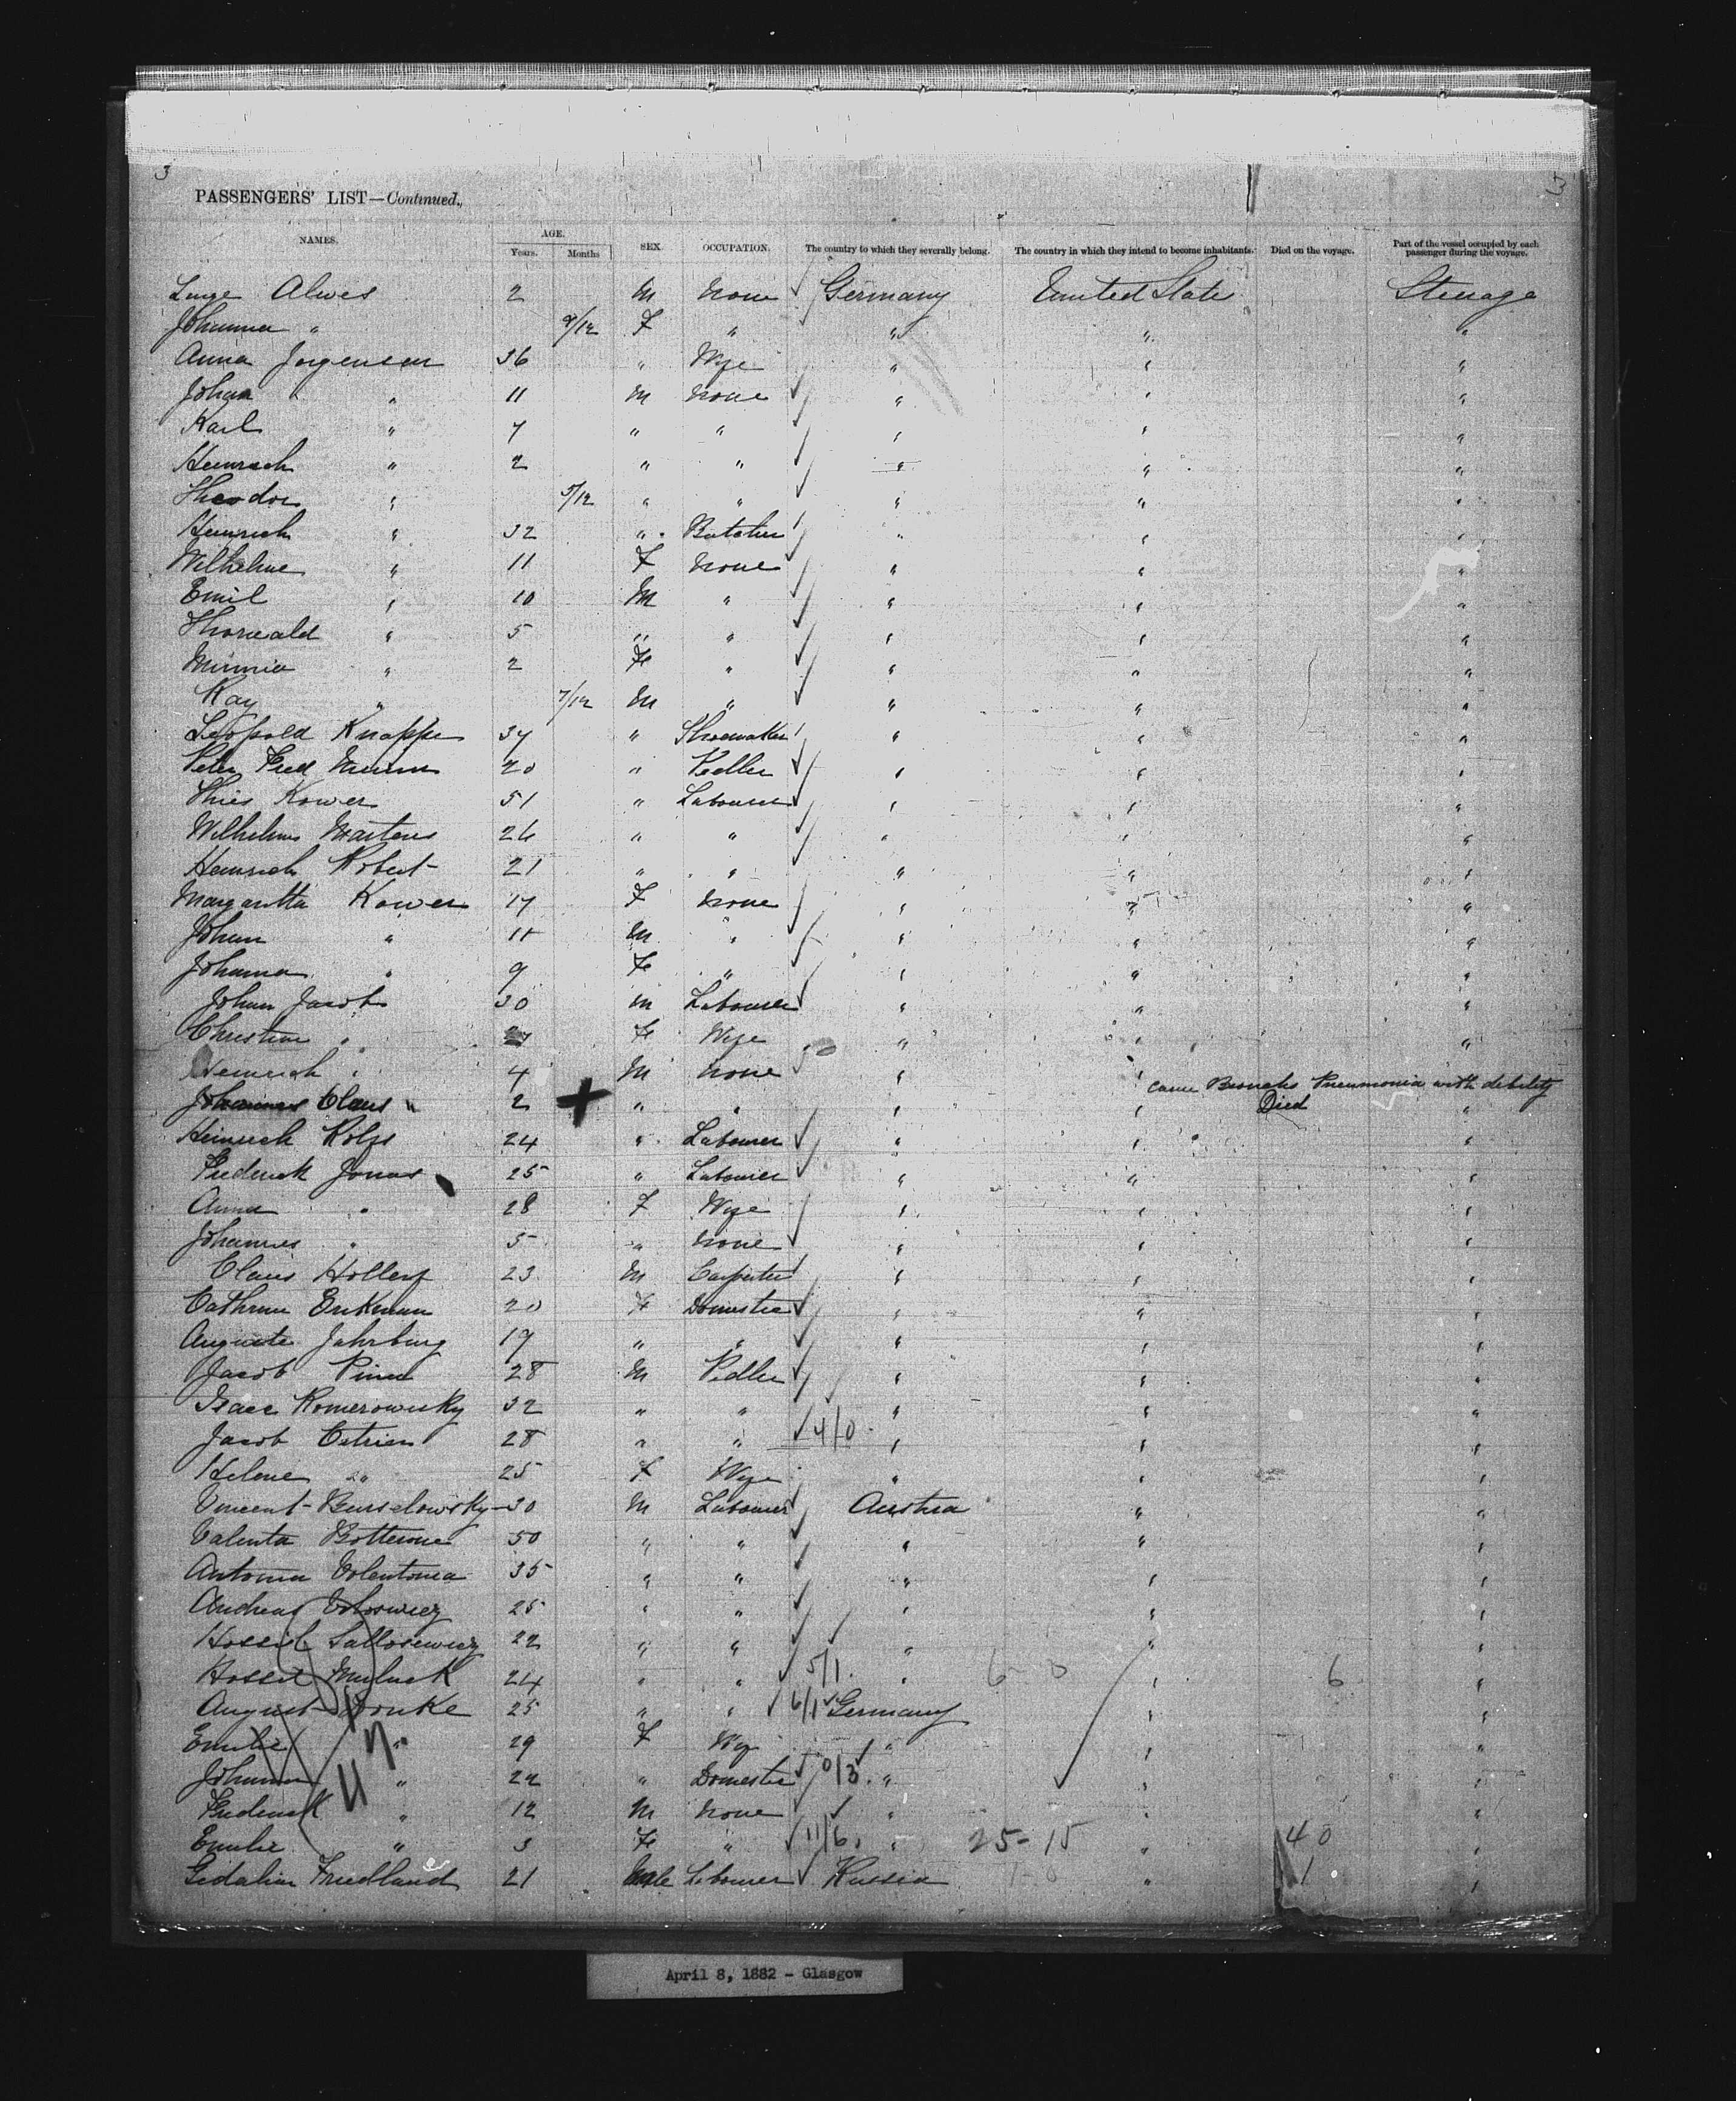 3 3
PASSENGERS' LIST—Continued.
NAMES. AGE. Years. Months SEX. OCCUPATION. The country to which they severally belong. The country in which they intend to become inhabitants. Died on the voyage. Part of the vessel occupied by each passenger during the voyage.
Alwes 2 M None Germany United State Steerage
Johanna " 9/12 F " " " "
Anna Jorgensen 36 " Wife " " "
Johan " 11 M None " " "
Karl " 7 " " " " "
Heinrich " 2 " " " " "
Theodor " 5/12 " " " " "
Heinrich " 32 " Butcher " " "
Wilhelme " 11 F None " " "
Emil " 10 M " " " "
Thorwald " 5 " " " " "
Minnia " 2 F " " " "
Kay " 7/12 M " " " "
Leopold Knappe 34 " Shoemaker " " "
Peter Fred 20 " Pedler " " "
Thies Kower 51 " Labourer " " "
Wilhelm Martens 26 " " " " "
Heinrich Robert 21 " " " " "
Margaretta Kower 17 F None " " "
Johan " 11 M " " " "
Johanna " 9 F " " " "
Johan Jacob 30 M Labourer " " "
Christine " F Wife " " "
Heinrich " 4 M None " " "
cause Broncho Pneumonia with debility
Johannes Claus " 2 + " " " " Died "
Heinrich Rolfs 24 " Labourer " " "
Frederick Jonas 25 " Labourer " " "
Anna " 28 F Wife " " "
Johannes " 5 " None " " "
Claus Hollery 23 M Carpenter " " "
Cathrine Erikman 20 F Domestic " " "
Auguste Jahrburg 19 " " " " "
Jacob 28 M Pedler " " "
Isaac Romerowsky 32 " " " " "
Jacob 28 " " 4/0 " " "
Helene " 25 F Wife " " "
Vincent 30 M Labourer Austria " "
Valenta 50 " " " " "
Antonia 35 " " " " "
Andreas 25 " " " " "
22 " " " " "
24 " " 5/1 " 6 0 " 6 "
August Donke 25 " " 6/1 Germany " "
Emilie " 29 F Wife " " "
Johanna " 22 " Domestic 0/3 " " "
Frederick " 12 M None " " "
Emilie " 3 F " 11/6 " 25-15 " 40 "
Gedalia Friedland 21 Male Labourer Russia 1-0 " 1 "
April 8, 1882 - Glasgow